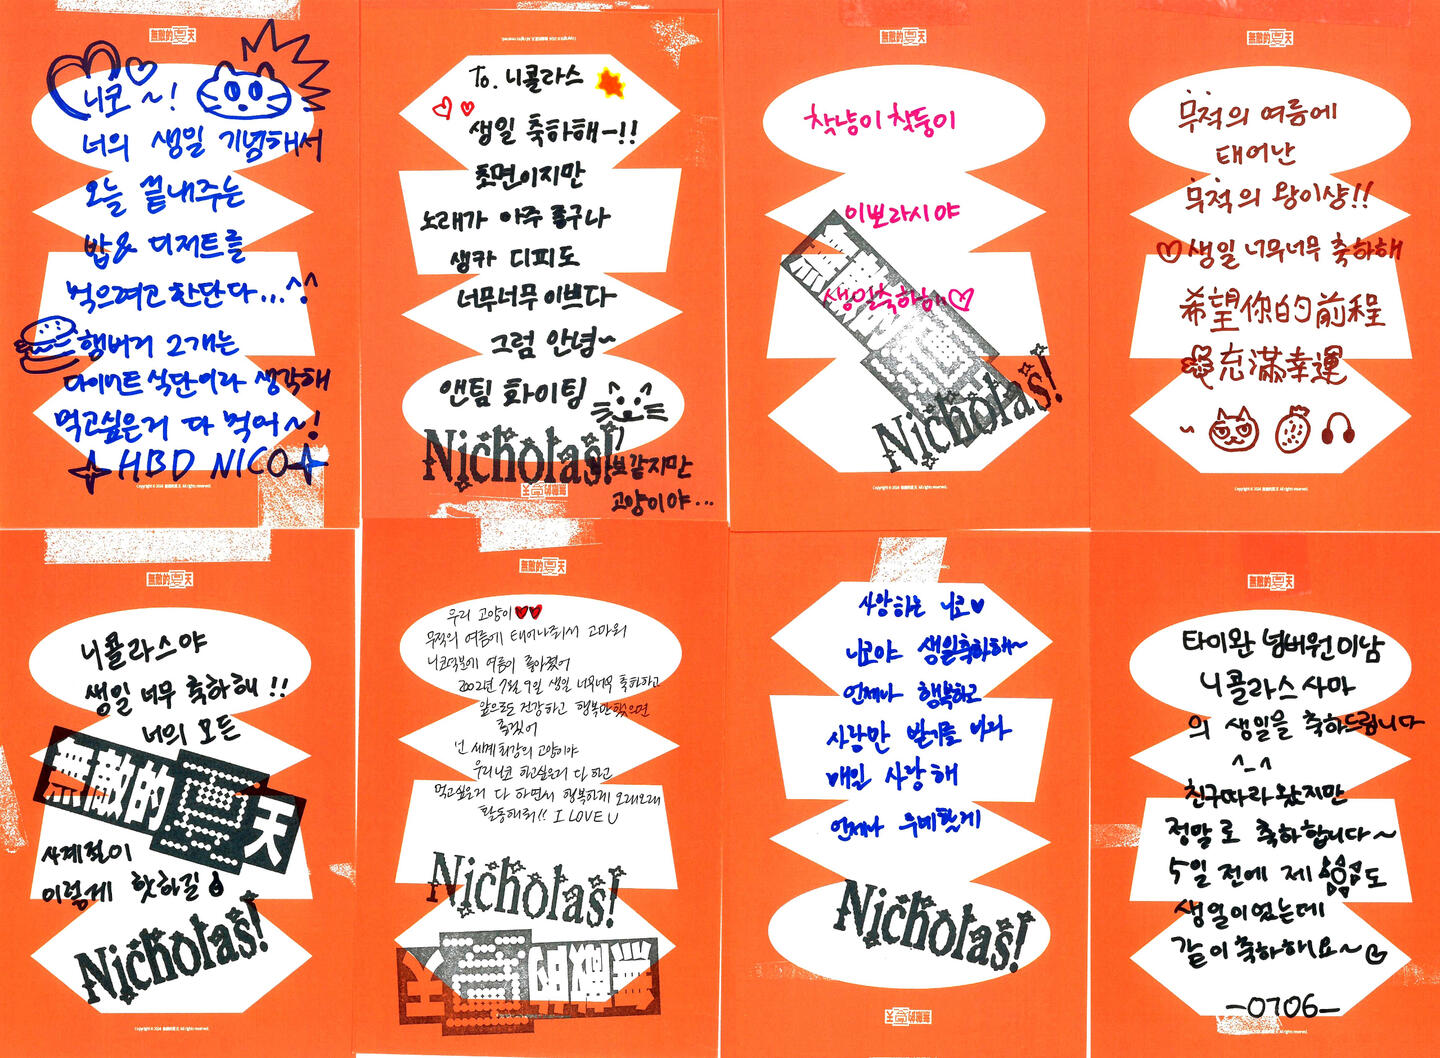 無敵的夏天
니코~!
너의 생일 기념해서
오늘 끝내주는
밥& 디저트를
먹으려고 한단다...^^
햄버거 2개는
다이어트 식단이라 생각해
먹고싶은거 다 먹어~!
HBD NICO
Copyright © 2024 無敵的夏天 All rights reserved.
To. 니콜라스
생일 축하해-!!
초면이지만
노래가 아주 좋구나
생카 디피도
너무너무 이쁘다
그럼 안녕~
앤팀 화이팅
Nicholas!
바보같지만
고양이야...
無敵的夏天
無敵的夏天
착냥이 착둥이
이쁘라시야
생일축하해♡
無敵的夏天
Nicholas!
無敵的夏天
무적의 여름에
태어난
무적의 왕이샹!!
♡생일 너무너무 축하해
希望你的前程
充滿幸運
~
無敵的夏天
니콜라스야
생일 너무 축하해!!
너의 모든
無敵的夏天
사계절이
이렇게 핫하길
Nicholas!
無敵的夏天
우리 고양이♥♥
무적의 여름에 태어나줘서 고마워
니코덕분에 여름이 좋아졌어
2002년 7월 9일 생일 너무너무 축하하고
앞으로도 건강하고 행복만했으면
좋겠어
넌 세계최강의 고양이야
우리니코 하고싶은거 다 하고
먹고싶은거 다 하면서 행복하게 오래오래
활동해줘!! I LOVE U
Nicholas!
無敵的夏天
사랑하는 니코♥
니코야 생일축하해~
언제나 행복하고
사랑만 받기를 바라
매일 사랑해
언제나 무비할게
Nicholas!
無敵的夏天
無敵的夏天
타이완 넘버원 미남
니콜라스 사마
의 생일을 축하드립니다
^_^
친구따라 왔지만
정말로 축하합니다~
5일 전에 제 도
생일이었는데
같이 축하해요~
-0706-